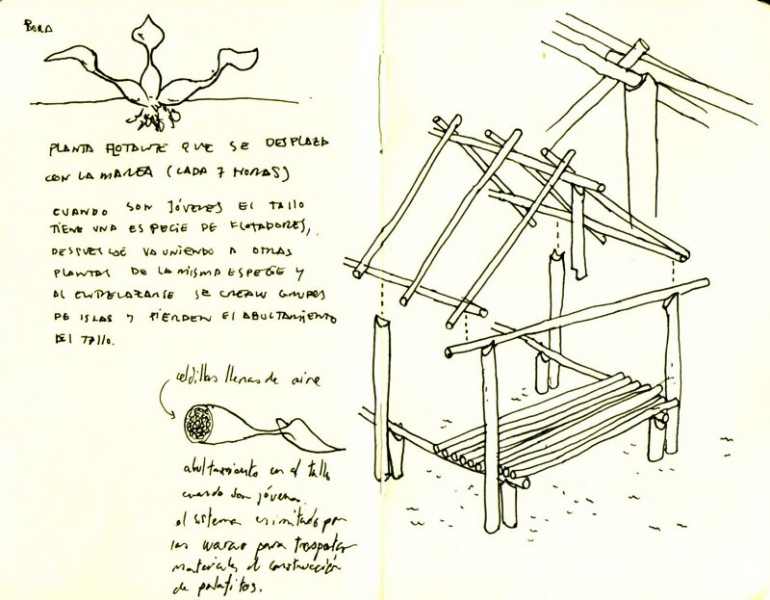 BORA
PLANTA FLOTANTE QUE SE DESPLAZA
CON LA MAREA (CADA 7 HORAS)
CUANDO SON JÓVENES EL TALLO
TIENE UNA ESPECIE DE FLOTADORES,
DESPUES SE VA UNIENDO A OTRAS
PLANTAS DE LA MISMA ESPECIE Y
AL ENTRELAZARSE SE CREAN GRUPOS
DE ISLAS Y PIERDEN EL ABULTAMIENTO
DEL TALLO.
celdillas llenas de aire
abultamiento en el tallo
cuando son jóvenes.
el sistema es imitado por
los warao para transportar
materiales de construcción
de palafitos.